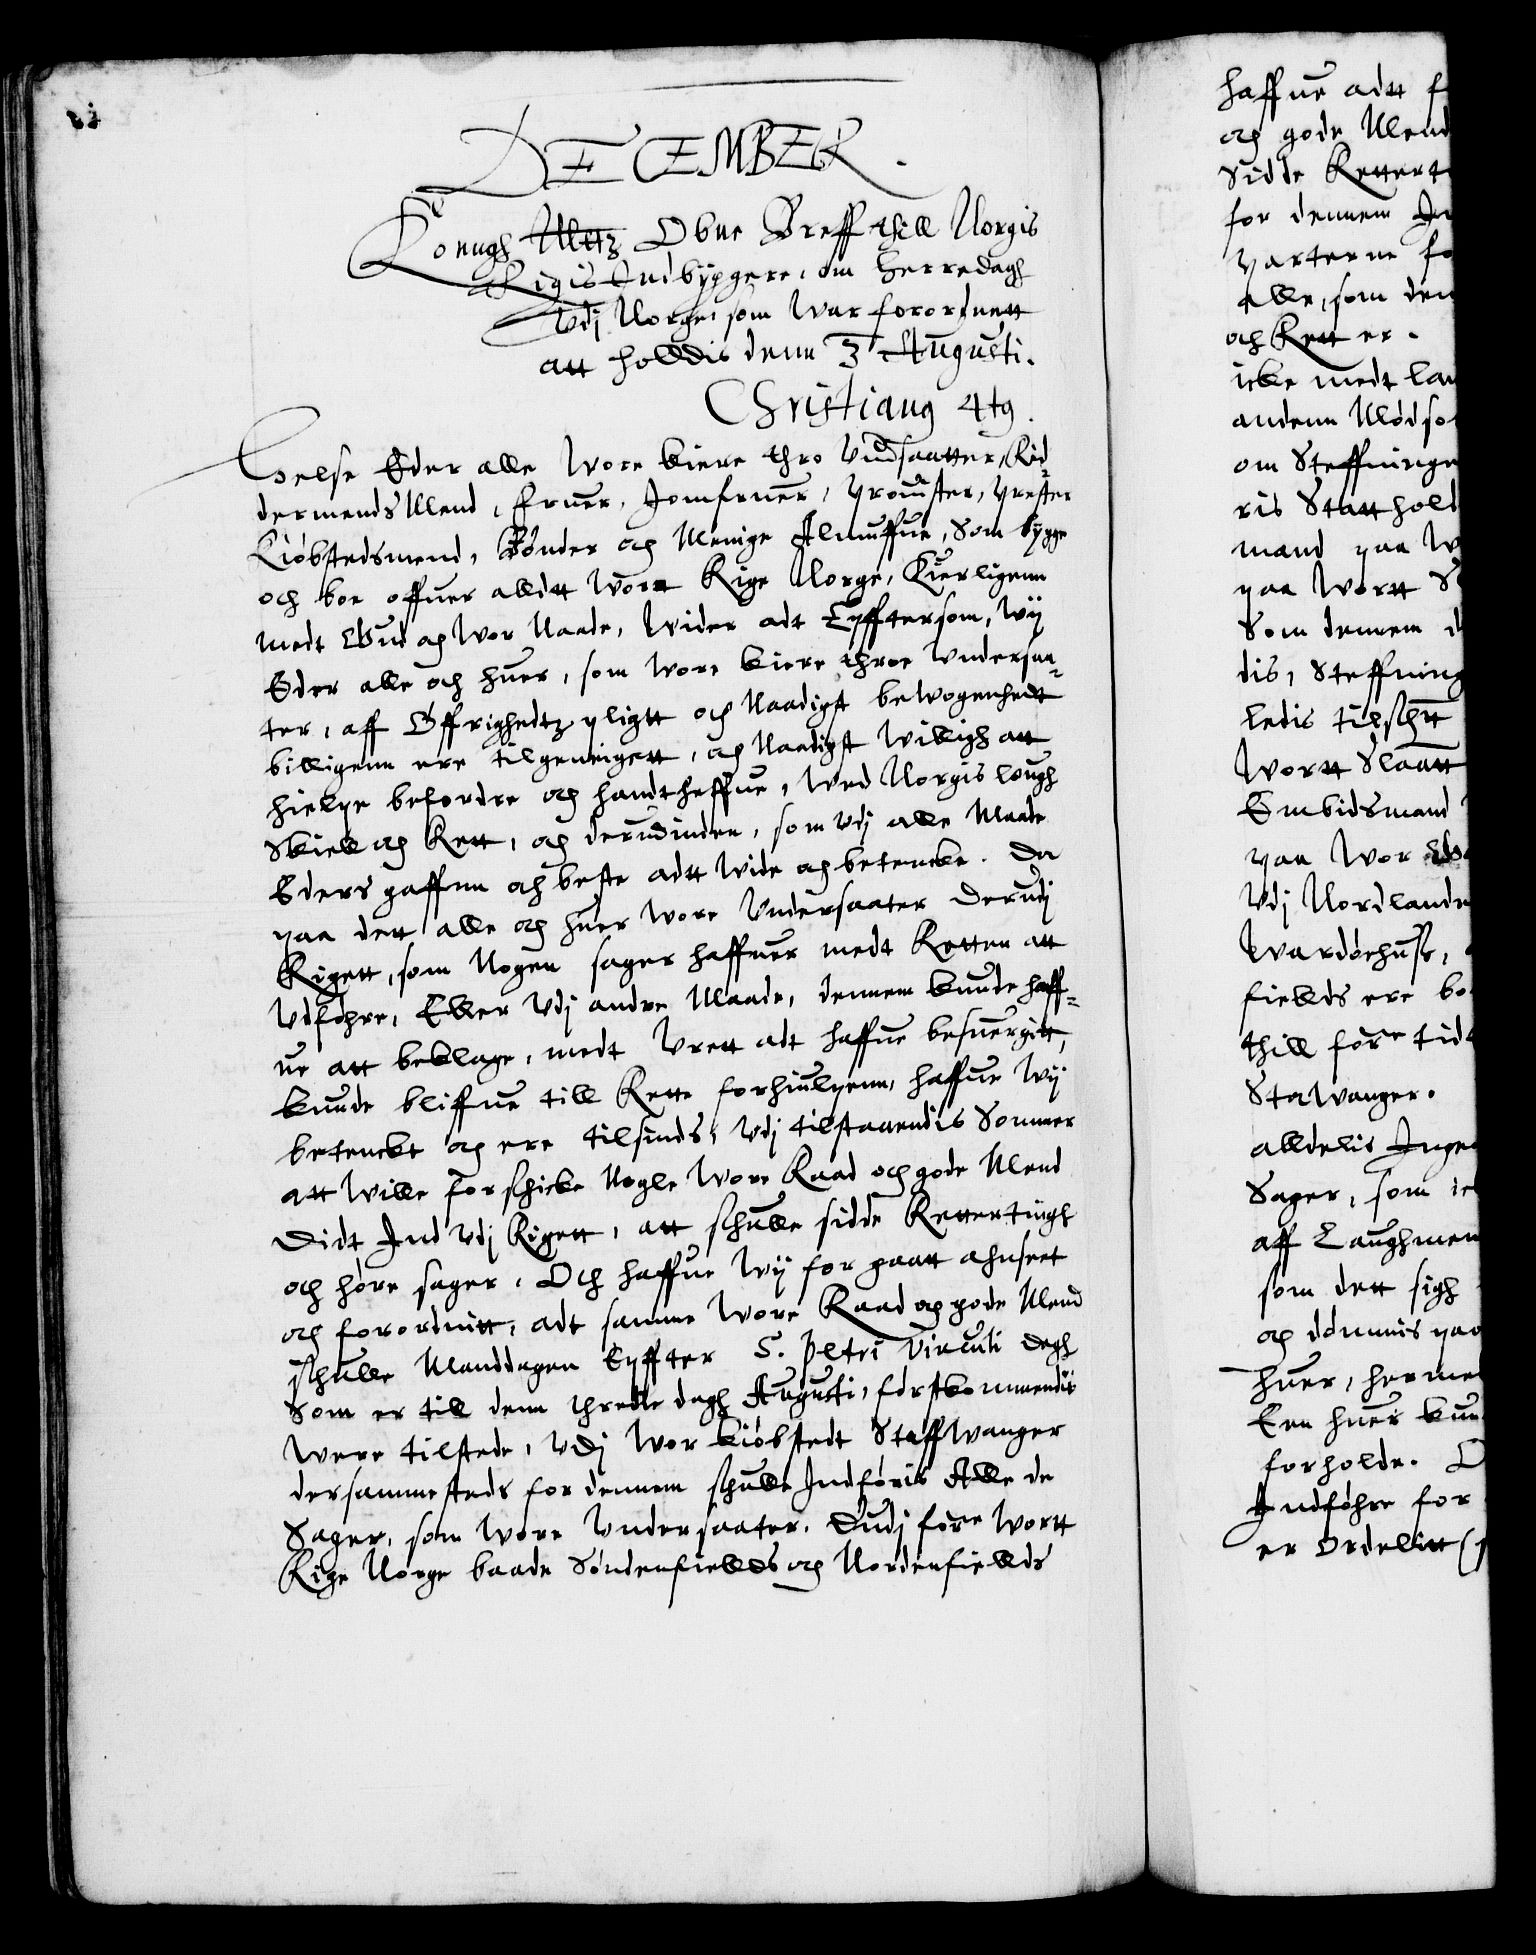 DECEMBER.
Konngh Mttz Obne Breff thill Norgis
Rigis Indbyggere, om Herredagh
Vdj Norge, som War forordnett
att holldis denn 3 Augusti.
Christianus 4tus.
Helse Eder alle Wore kiere thro Vndsaatter, Rid-
dermends Mend, Fruer, Jomfruer, Prouster, Prester
Kiøbstedsmend, Bønder och Menige Almuffue, Som bygge
och boe offuer alldtt Wort Rige Norge, Kierligenn
medt Gud och Wor Naade, Wider adt Epfftersom, Wij
Eder alle och huer, som Wore kiere throe Vndersaa-
ter, aff Øffrighedtz pligtt och Naadigst beWogenhedt
billigenn ere tilgeneigett, och Naadigst Willigh att
hielpe befordre och handtheffue, Wed Norgis lough
Skiell och Rett, och derudinden, som Vdj alle Maade
Eders gaffnn och beste adtt Wide och betencke. Da
paa dett alle och huer Wore Vndersaater Derudj
Rigett, som Nogen sager haffuer medt Retten att
Vdføhre, Eller Vdj andre Maade, dennem kunde haff-
ue att beklage, medt Vrett adt haffue besuergitt,
kunde bliffue till Rette forhiulpenn, haffue Wij
betenckt och ere tilsinds, Vdj tilstaaendis Sommer
att Wille forschicke Nogle Wore Raad och gode Mend
Didt Ind Vdj Rigett, att schulle sidde Rettertingh
och høre sager, Och haffue Wij for gaatt ahnseet
och forordnitt, adt samme Wore Raad och gode Mend
schulle Manddagen Epffter S. Petri Vinculi dagh
Som er till denn thredie dagh Augusti, førstkommendis
Were tilstede, Vdj Wor kiøbstedt StaffWanger
dersammesteds for dennem schulle Indføris Alle de
Sager, som Wore Vndersaater, Vdj førne Wortt
Rige Norge baade Søndenfields och Nordenfields
haffue adtt
och gode Mend
Sidde
for dennem
parterne
alle, som den
och Rett er.
icke medt
andenn
om Steffninge
ris Statthold
mand paa
paa Wortt
Som dennem
dis, Steffning
ledis tilschett
Wortt Slaatt
Embidsmand
paa Wor
Vdj Nordlande
Wardøehuss,
fields ere
thill førne
StaWanger.
alldelis
Sager, som
aff Laughmen
som dett sigh
och dømmis
huer,
Een huer
forholde.
Indføhre for
er Ordelitt